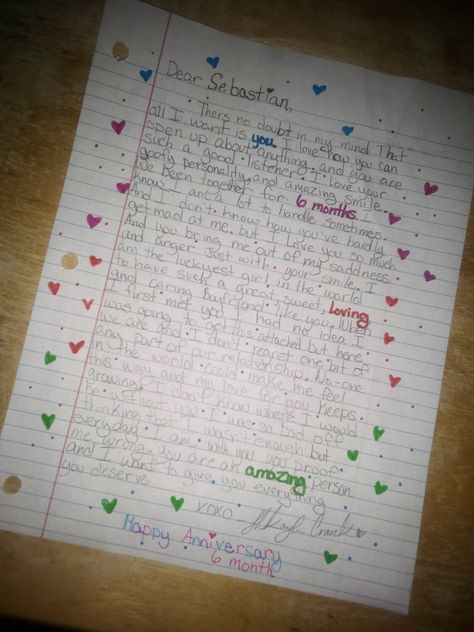 Dear Sebastian,
Thers no doubt in my mind That
all I want is you. I love how you can
open up about anything and you are
such a good listener. I Love your
goofy personality, and amazing smile.
We been together for 6 months. I
know I am a lot to handle sometimes.
And I don't know how you've hardly
get mad at me. but I Love you so much
And you bring me out of my saddness
and anger Just with your smile. I
am the luckyest girl in the world
to have such a great, sweet, Loving
and caring Boyfriend like you. When
I first met you I had no idea I
was going to get this attached but here
we are and I don't regret one bit of
any part of our relationship. No-one
in the world could make me feel
this way and my love for you keeps
growing. I don't know where I would
be without you. I was so bad off
thinking that I wasn't enough but
everyday I am with you you proof
me wrong. you are an amazing person
and I want to give you everything
you deserve.
XOXO
Happy Anniversary
6 month